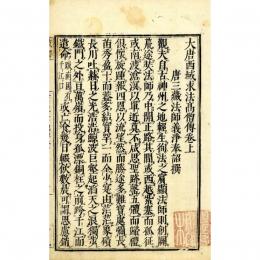 大唐西域求法高僧傳卷上
唐三藏法師義淨奉詔撰
觀夫自古神州之地輕生徇法之賓顯法師則創闢
荒途奘法師乃中開正路其間或西越紫塞而孤征
或南渡滄溟以單逝莫不咸思聖跡五體而歸禮
俱懷旋踵報四恩以流望然而勝途多難寶處彌長
苗秀盈十而蓋多結實罕一而全少寔由茫茫象磧
長川吐赫日之光浩浩鯨波巨壑起滔天之浪獨步
鐵門之外亘萬嶺而投身孤漂銅柱之前跨千江而
遣命或亡飡幾日輟飲數晨可謂思慮銷